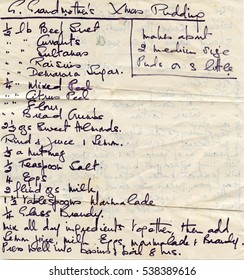 G. Grandmother's Xmas Pudding
½ lb Beef Suet
" " Currants
" " Sultanas
" " Raisins
" " Demerara Sugar.
makes about
2 medium size
Puds or 3 little
¼ Mixed Peel
" Citrus Peel
" Flour
" Bread Crumbs
2½ ozs Sweet Almonds.
Rind & juice 1 Lemon.
½ a Nutmeg
½ Teaspoon Salt.
4 Eggs
2 fluid ozs milk
1½ Tablespoons Marmalade
½ Glass Brandy.
Mix all dry ingredients together, then add,
Lemon juice, milk Eggs, marmalade & Brandy.
Press well into basins & boil 8 hrs.
shutterstock.com · 538389616